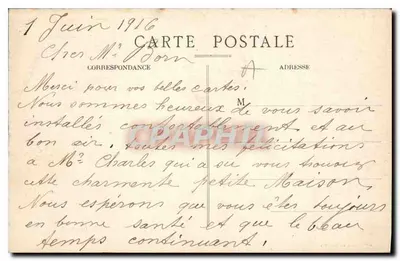 1 Juin 1916
Cher Mr Born
CARTE POSTALE
CORRESPONDANCE
ADRESSE
Merci pour vos belles cartes.
Nous sommes heureux de vous savoir
M
installés confortablement et au
bon air. toutes mes félicitations
à Mr Charles qui a su vous trouver
cette charmante petite Maison
Nous espérons que vous êtes toujours
en bonne santé et que le beau
temps continuant.